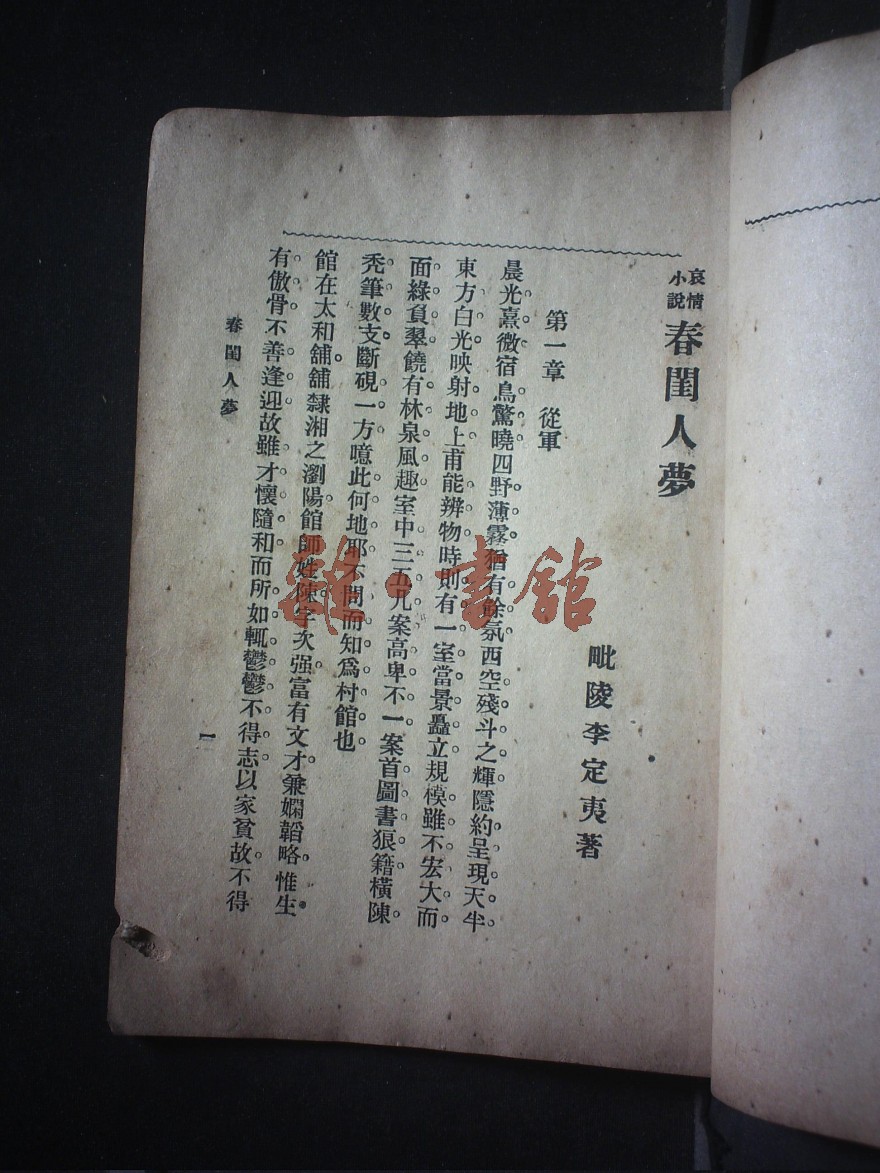 哀情小說 春閨人夢
毗陵李定夷著
第一章 從軍
晨光熹微宿鳥驚曉四野薄霧猶有餘氛西空殘斗之輝隱約呈現天半
東方白光映射地上甫能辨物時則有一室當景矗立規模雖不宏大而
面綠負翠饒有林泉風趣室中三五几案高卑不一案首圖書狼籍橫陳
禿筆數支斷硯一方噫此何地耶不問而知爲村館也
館在太和舖舖隸湘之瀏陽館師姓陳字次强富有文才兼嫻韜略惟生
有傲骨不善逢迎故雖才懷隨和而所如輒鬱鬱不得志以家貧故不得
春閨人夢
一
雜·書館